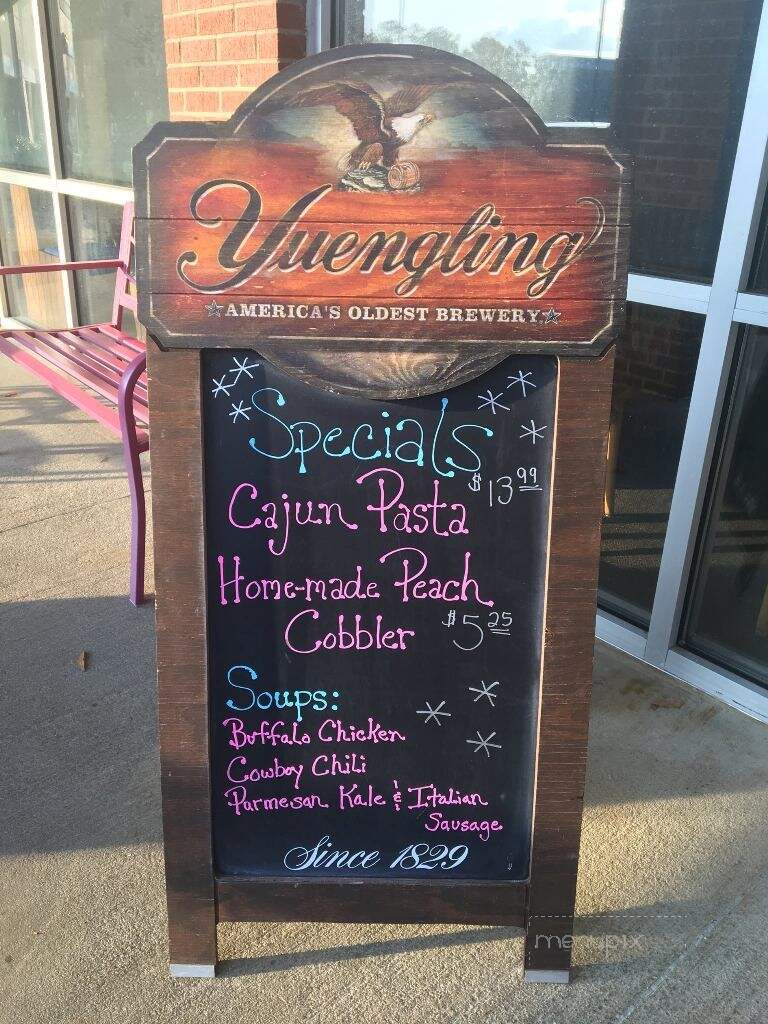 Yuengling
AMERICA'S OLDEST BREWERY
Specials
$13.99
Cajun Pasta
Home-made Peach
Cobbler $5.25
Soups:
Buffalo Chicken
Cowboy Chili
Parmesan Kale & Italian
Sausage
Since 1829
menupix